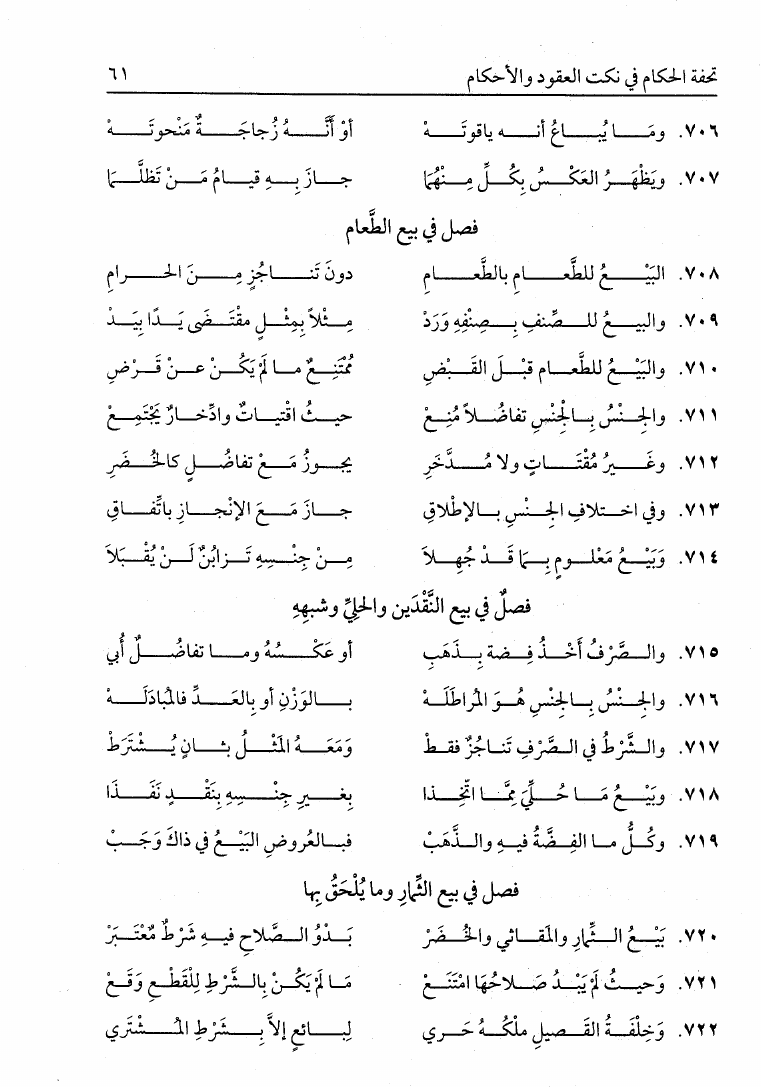 تحفة الحكام في نكت العقود والأحكام ٦١
٧٠٦. ومَا يُبَاعُ أنه ياقوتَهْ أوْ أنَّهُ زُجاجَةٌ مَنْحوتَهْ
٧٠٧. ويَظْهَرُ العَكْسُ بِكُلٍّ مِنْهُمَا جازَ بِهِ قيامُ مَنْ تَظَلَّمَا
فصل في بيع الطَّعام
٧٠٨. البَيْعُ للطَّعامِ بالطَّعامِ دونَ تَنَاجُزٍ مِنَ الحرامِ
٧٠٩. والبيعُ للصِّنفِ بِصِنْفِهِ وَرَدْ مِثْلاً بِمِثْلٍ مقْتَضًى يَدًا بِيَدْ
٧١٠. والبَيْعُ للطَّعامِ قبْلَ القَبْضِ مُمْتَنِعٌ ما لَمْ يَكُنْ عنْ قَرْضِ
٧١١. والجِنْسُ بِالجِنْسِ تفاضُلاً مُنِعْ حيثُ اقْتِياتٌ وادِّخارٌ يَجْتَمِعْ
٧١٢. وغَيرُ مُقْتَاتٍ ولا مُدَّخَرِ يجوزُ مَعْ تفاضُلٍ كالخُضَرِ
٧١٣. وفي اختلافِ الجنْسِ بالإطْلاقِ جازَ مَعَ الإنْجازِ باتِّفاقِ
٧١٤. وَبَيْعُ مَعْلومٍ بِمَا قَدْ جُهِلاَ مِنْ جِنْسِهِ تَزابُنٌ لَنْ يُقْبَلاَ
فصلٌ في بيع النَّقْدَين والحَلِيِّ وشبهِهِ
٧١٥. والصَّرْفُ أَخْذُ فِضة بِذَهَبِ أو عَكْسُهُ وما تفاضُلٌ أُبي
٧١٦. والجِنْسُ بِالجِنْسِ هُوَ المُراطَلَهْ بالوَزْنِ أو بِالعَدِّ فالمُبادَلَهْ
٧١٧. والشَّرْطُ في الصَّرْفِ تَنَاجُزٌ فقطْ وَمَعَهُ المْثْلُ بثانٍ يُشْتَرَطْ
٧١٨. وبَيْعُ مَا حُلِّيَ مِمَّا اتُّخِذا بِغيرِ جِنْسِهِ بِنَقْدٍ نَفَذَا
٧١٩. وكُلُّ ما الفِضَّةُ فيهِ والذَّهَبْ فبالعُروضِ البَيْعُ في ذاكَ وَجَبْ
فصل في بيع الثِّمارِ وما يُلْحَقُ بِها
٧٢٠. بَيْعُ الثِّمارِ والمَقَاثي والخُضَرْ بَدْوُ الصَّلاحِ فيهِ شَرْطٌ مُعْتَبَرْ
٧٢١. وَحيثُ لَمْ يَبْدُ صَلاَحُهَا امْتَنَعْ مَا لَمْ يَكُنْ بِالشَّرْطِ لِلقَطْعِ وَقَعْ
٧٢٢. وَخِلْفَةُ القَصيلِ مِلْكُهُ حَري لِبائعٍ إلاَّ بِشَرْطِ المُشْتَري